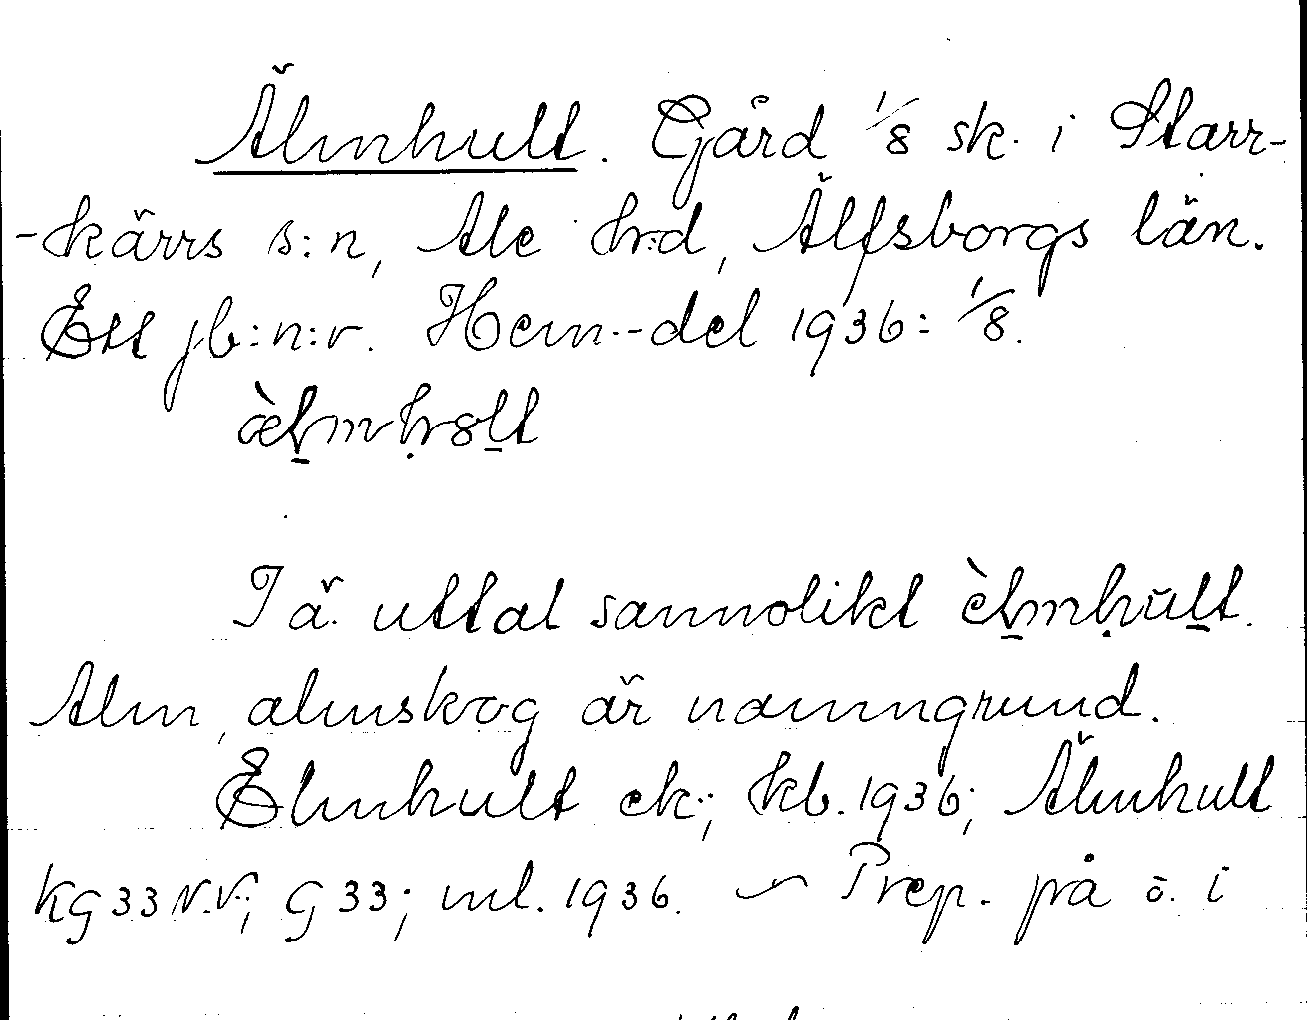 Älmhult. Gård 1/8 sk. i Starr-
-kärrs s:n, Ale hr:d, Älfsborgs län.
Ett jb:n:r. Hem.-del 1936: 1/8.
I ä. uttal sannolikt
Alm, almskog är namngrund.
Elmhult ek.; kb. 1936; Älmhult
KG 33 N.V.; G 33; ml. 1936. ~ Prep. på o. i